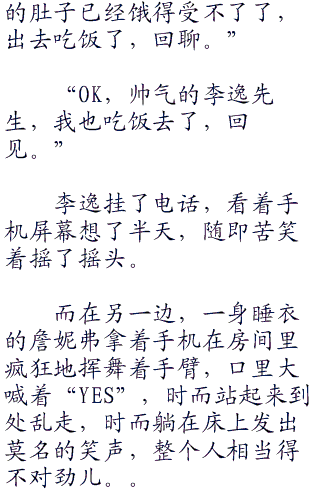 的肚子已经饿得受不了了，
出去吃饭了，回聊。”
“OK，帅气的李逸先
生，我也吃饭去了，回
见。”
李逸挂了电话，看着手
机屏幕想了半天，随即苦笑
着摇了摇头。
而在另一边，一身睡衣
的詹妮弗拿着手机在房间里
疯狂地挥舞着手臂，口里大
喊着“YES”，时而站起来到
处乱走，时而躺在床上发出
莫名的笑声，整个人相当得
不对劲儿。。